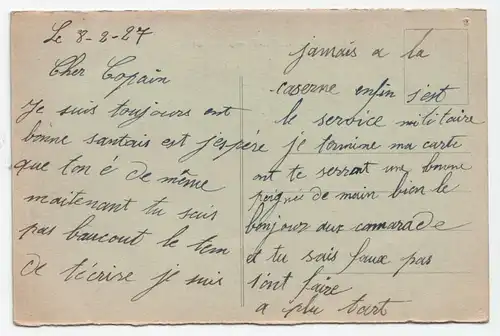 Le 8-2-27
Cher Copain
Je suis toujours ent
bonne santais est j'espére
que ton é de même
maitenant tu sais
pas baucout le tem
de t'écrise je suis
jamais a la
caserne enfin s'est
le service militaire
je termine ma carte
ont te serrant une bonne
poignée de main bien le
bonjour aux camarade
et tu sais faux pas
s'ont faire
a plu tart